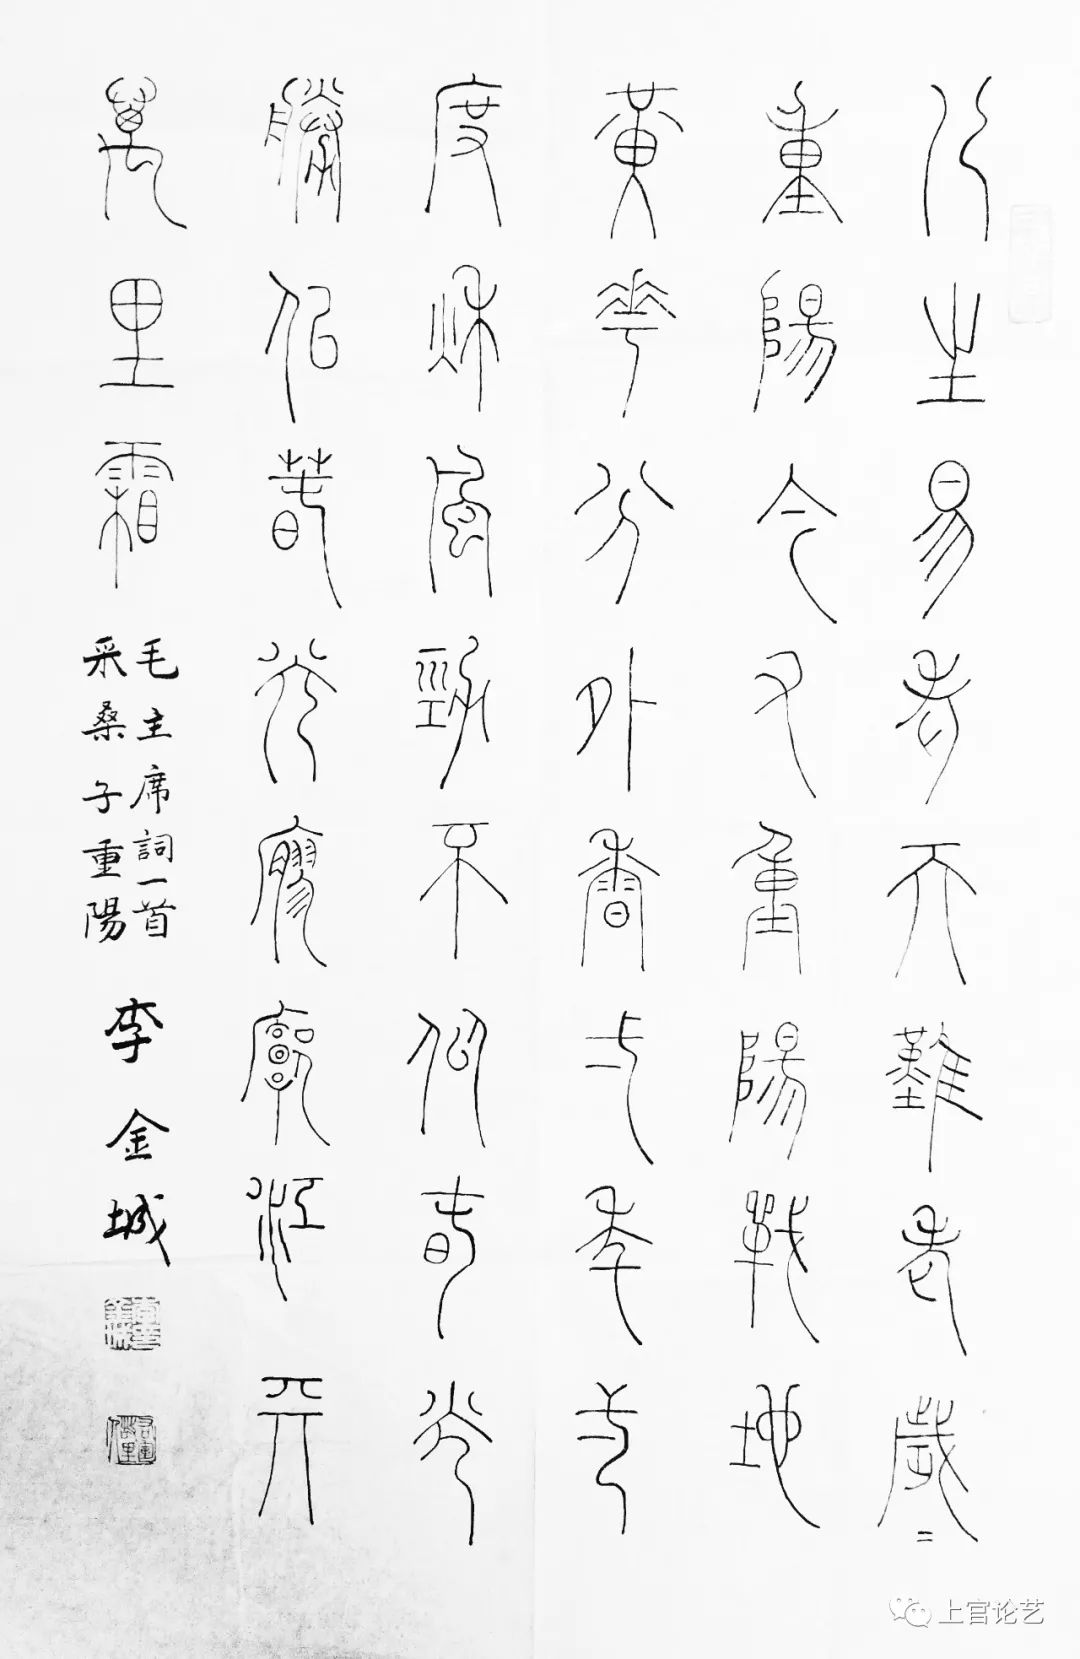 人生易老天難老歲=
重陽今又重陽戰地
黃華分外香一年一
度秋風勁不似春光
勝似春光寥廓江天
萬里霜
毛主席詞一首
采桑子重陽
李金城
上官论艺